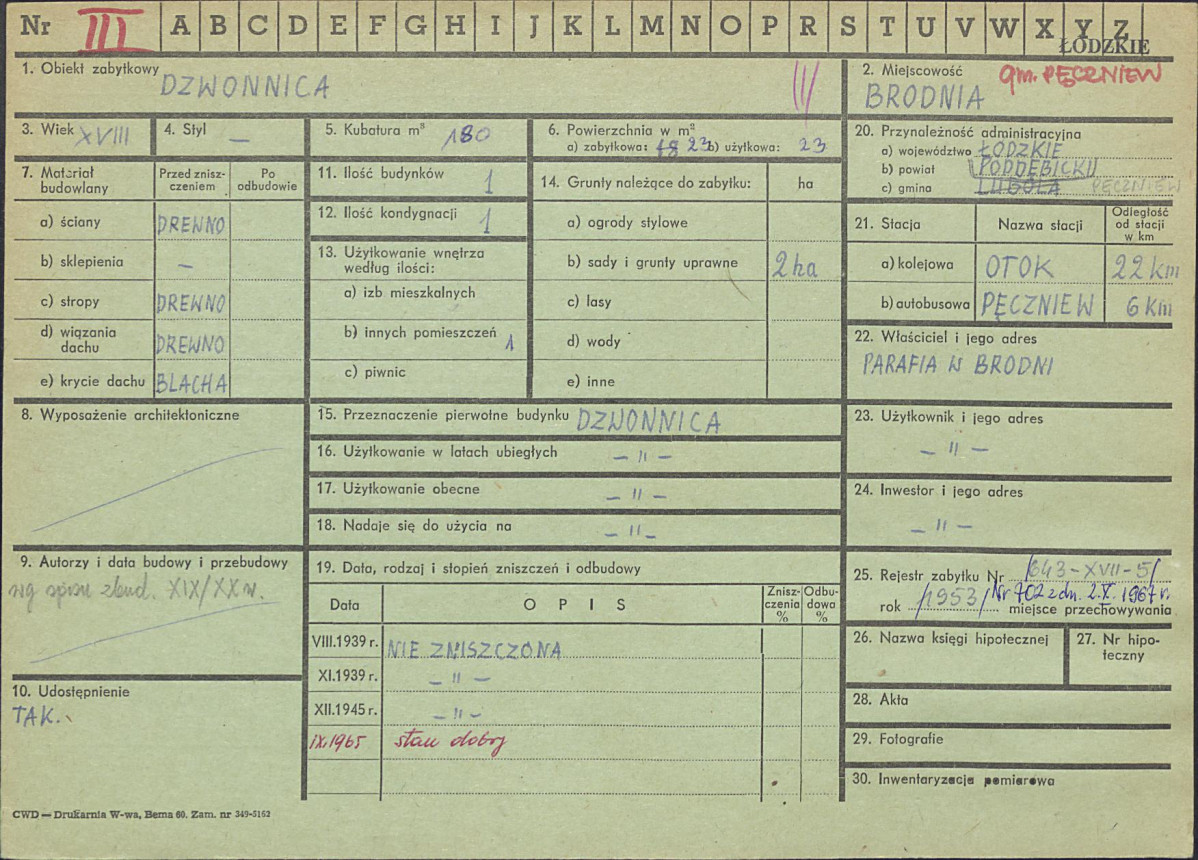 Nr III A B C D E F G H I J K L M N O P R S T U V W X Y Z
ŁÓDZKIE
1. Obiekt zabytkowy DZWONNICA III
2. Miejscowość gm. PĘCZNIEW
BRODNIA
3. Wiek XVIII
4. Styl —
5. Kubatura m³ 180
6. Powierzchnia w m²
a) zabytkowa: 18 23 b) użytkowa: 23
7. Materiał budowlany
Przed zniszczeniem
Po odbudowie
a) ściany DREWNO
b) sklepienia —
c) stropy DREWNO
d) wiązania dachu DREWNO
e) krycie dachu BLACHA
8. Wyposażenie architektoniczne
9. Autorzy i data budowy i przebudowy
wg spisu zbud. XIX/XX w.
10. Udostępnienie
TAK.
11. Ilość budynków 1
12. Ilość kondygnacji 1
13. Użytkowanie wnętrza według ilości:
a) izb mieszkalnych
b) innych pomieszczeń 1
c) piwnic
14. Grunty należące do zabytku: ha
a) ogrody stylowe
b) sady i grunty uprawne 2 ha
c) lasy
d) wody
e) inne
15. Przeznaczenie pierwotne budynku DZWONNICA
16. Użytkowanie w latach ubiegłych — " —
17. Użytkowanie obecne — " —
18. Nadaje się do użycia na — " —
19. Data, rodzaj i stopień zniszczeń i odbudowy
Data OPIS Zniszczenia % Odbudowa %
VIII.1939 r. NIE ZNISZCZONA
XI.1939 r. — " —
XII.1945 r. — " —
IX.1965 stan dobry
20. Przynależność administracyjna
a) województwo ŁÓDZKIE
b) powiat PODDĘBICKI
c) gmina LUBOLA PĘCZNIEW
21. Stacja Nazwa stacji Odległość od stacji w km
a) kolejowa OTOK 22 km
b) autobusowa PĘCZNIEW 6 km
22. Właściciel i jego adres
PARAFIA W BRODNI
23. Użytkownik i jego adres
— " —
24. Inwestor i jego adres
— " —
25. Rejestr zabytku Nr /643-XVII-5/
rok /1953/ Nr 702 z dn. 2.X.1967 r.
miejsce przechowywania
26. Nazwa księgi hipotecznej
27. Nr hipoteczny
28. Akta
29. Fotografie
30. Inwentaryzacja pomiarowa
CWD — Drukarnia W-wa, Bema 60. Zam. nr 349-5162